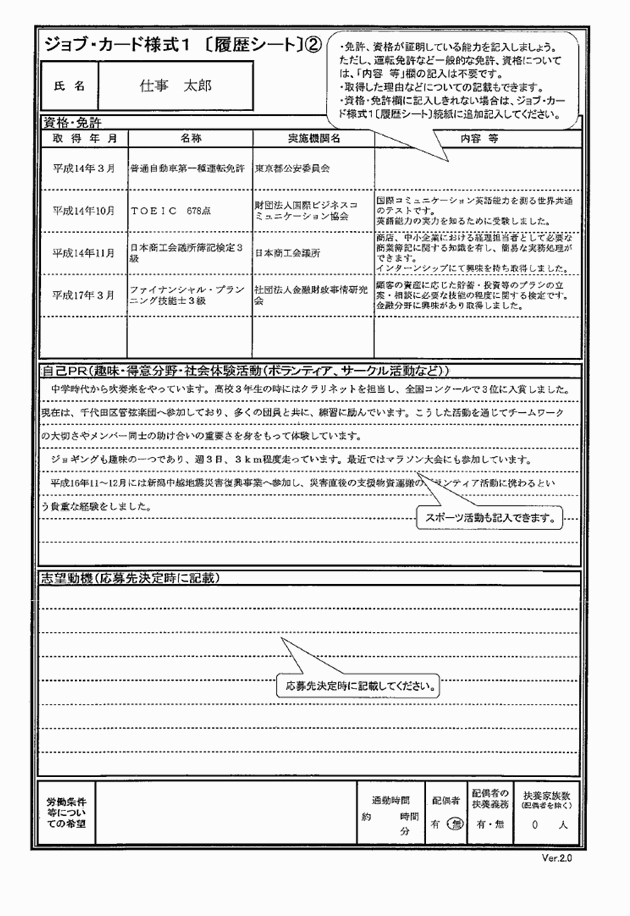 ジョブ・カード様式1〔履歴シート〕②
・免許、資格が証明している能力を記入しましょう。
ただし、運転免許など一般的な免許、資格について
は、「内容 等」欄の記入は不要です。
・取得した理由などについての記載もできます。
・資格・免許欄に記入しきれない場合は、ジョブ・カー
ド様式1〔履歴シート〕続紙に追加記入してください。
氏 名
仕事 太郎
資格・免許
取 得 年 月 名称 実施機関名 内容 等
平成14年3月 普通自動車第一種運転免許 東京都公安委員会
平成14年10月 TOEIC 678点
財団法人国際ビジネスコ
ミュニケーション協会
国際コミュニケーション英語能力を測る世界共通
のテストです。
英語能力の実力を知るために受験しました。
平成14年11月
日本商工会議所簿記検定3
級
日本商工会議所
商店、中小企業における経理担当者として必要な
商業簿記に関する知識を有し、簡易な実務処理が
できます。
インターンシップにて興味を持ち取得しました。
平成17年3月
ファイナンシャル・プラン
ニング技能士3級
社団法人金融財政事情研究
会
顧客の資産に応じた貯蓄・投資等のプランの立
案・相談に必要な技能の程度に関する検定です。
金融分野に興味があり取得しました。
自己PR(趣味・得意分野・社会体験活動(ボランティア、サークル活動など))
中学時代から吹奏楽をやっています。高校3年生の時にはクラリネットを担当し、全国コンクールで3位に入賞しました。
現在は、千代田区管弦楽団へ参加しており、多くの団員と共に、練習に励んでいます。こうした活動を通じてチームワーク
の大切さやメンバー同士の助け合いの重要さを身をもって体験しています。
ジョギングも趣味の一つであり、週3日、3km程度走っています。最近ではマラソン大会にも参加しています。
平成16年11~12月には新潟中越地震災害復興事業へ参加し、災害直後の支援物資運搬のボランティア活動に携わるとい
う貴重な経験をしました。
スポーツ活動も記入できます。
志望動機(応募先決定時に記載)
応募先決定時に記載してください。
労働条件
等につい
ての希望
通勤時間
約 時間
分
配偶者
有・無
配偶者の
扶養義務
有・無
扶養家族数
(配偶者を除く)
0 人
Ver.2.0